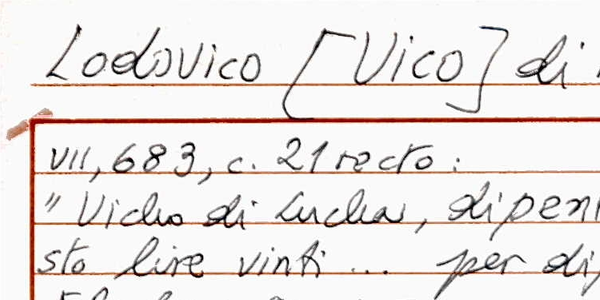 Lodovico [Vico] di
VII, 683, c. 21 recto:
"Vicho di Lucha, dipen
sto lire vinti ... per di